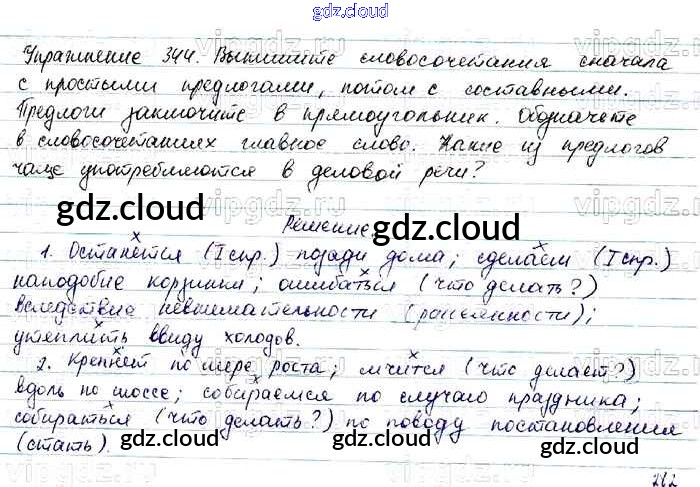 gdz.cloud
Упражнение 344. Выпишите словосочетания сначала
с простыми предлогами, потом с составными.
Предлоги заключите в прямоугольник. Обозначьте
в словосочетаниях главное слово. Какие из предлогов
чаще употребляются в деловой речи?
gdz.cloud gdz.cloud
Решение
1. Останется (I спр.) позади дома; сделаем (I спр.)
наподобие корзинки; ошибаться (что делать?)
вследствие невнимательности (рассеянности);
утеплить ввиду холодов.
2. Крепнет по мере роста; мчится (что делает?)
вдоль по шоссе; собираемся по случаю праздника;
собираться (что делать?) по поводу постановления
(стать).
gdz.cloud gdz.cloud
212